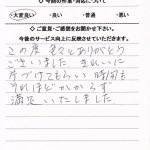 ◇ 今回の作業・対応について
大変良い ・良い ・普通 ・悪い
◇ ご意見・ご感想をお聞かせ下さい。
今後のサービス向上に反映させていただきます。
この度 色々とありがとう
ございました きれいに
片づけてもらい 時間も
それほどかからず
満足いたしました